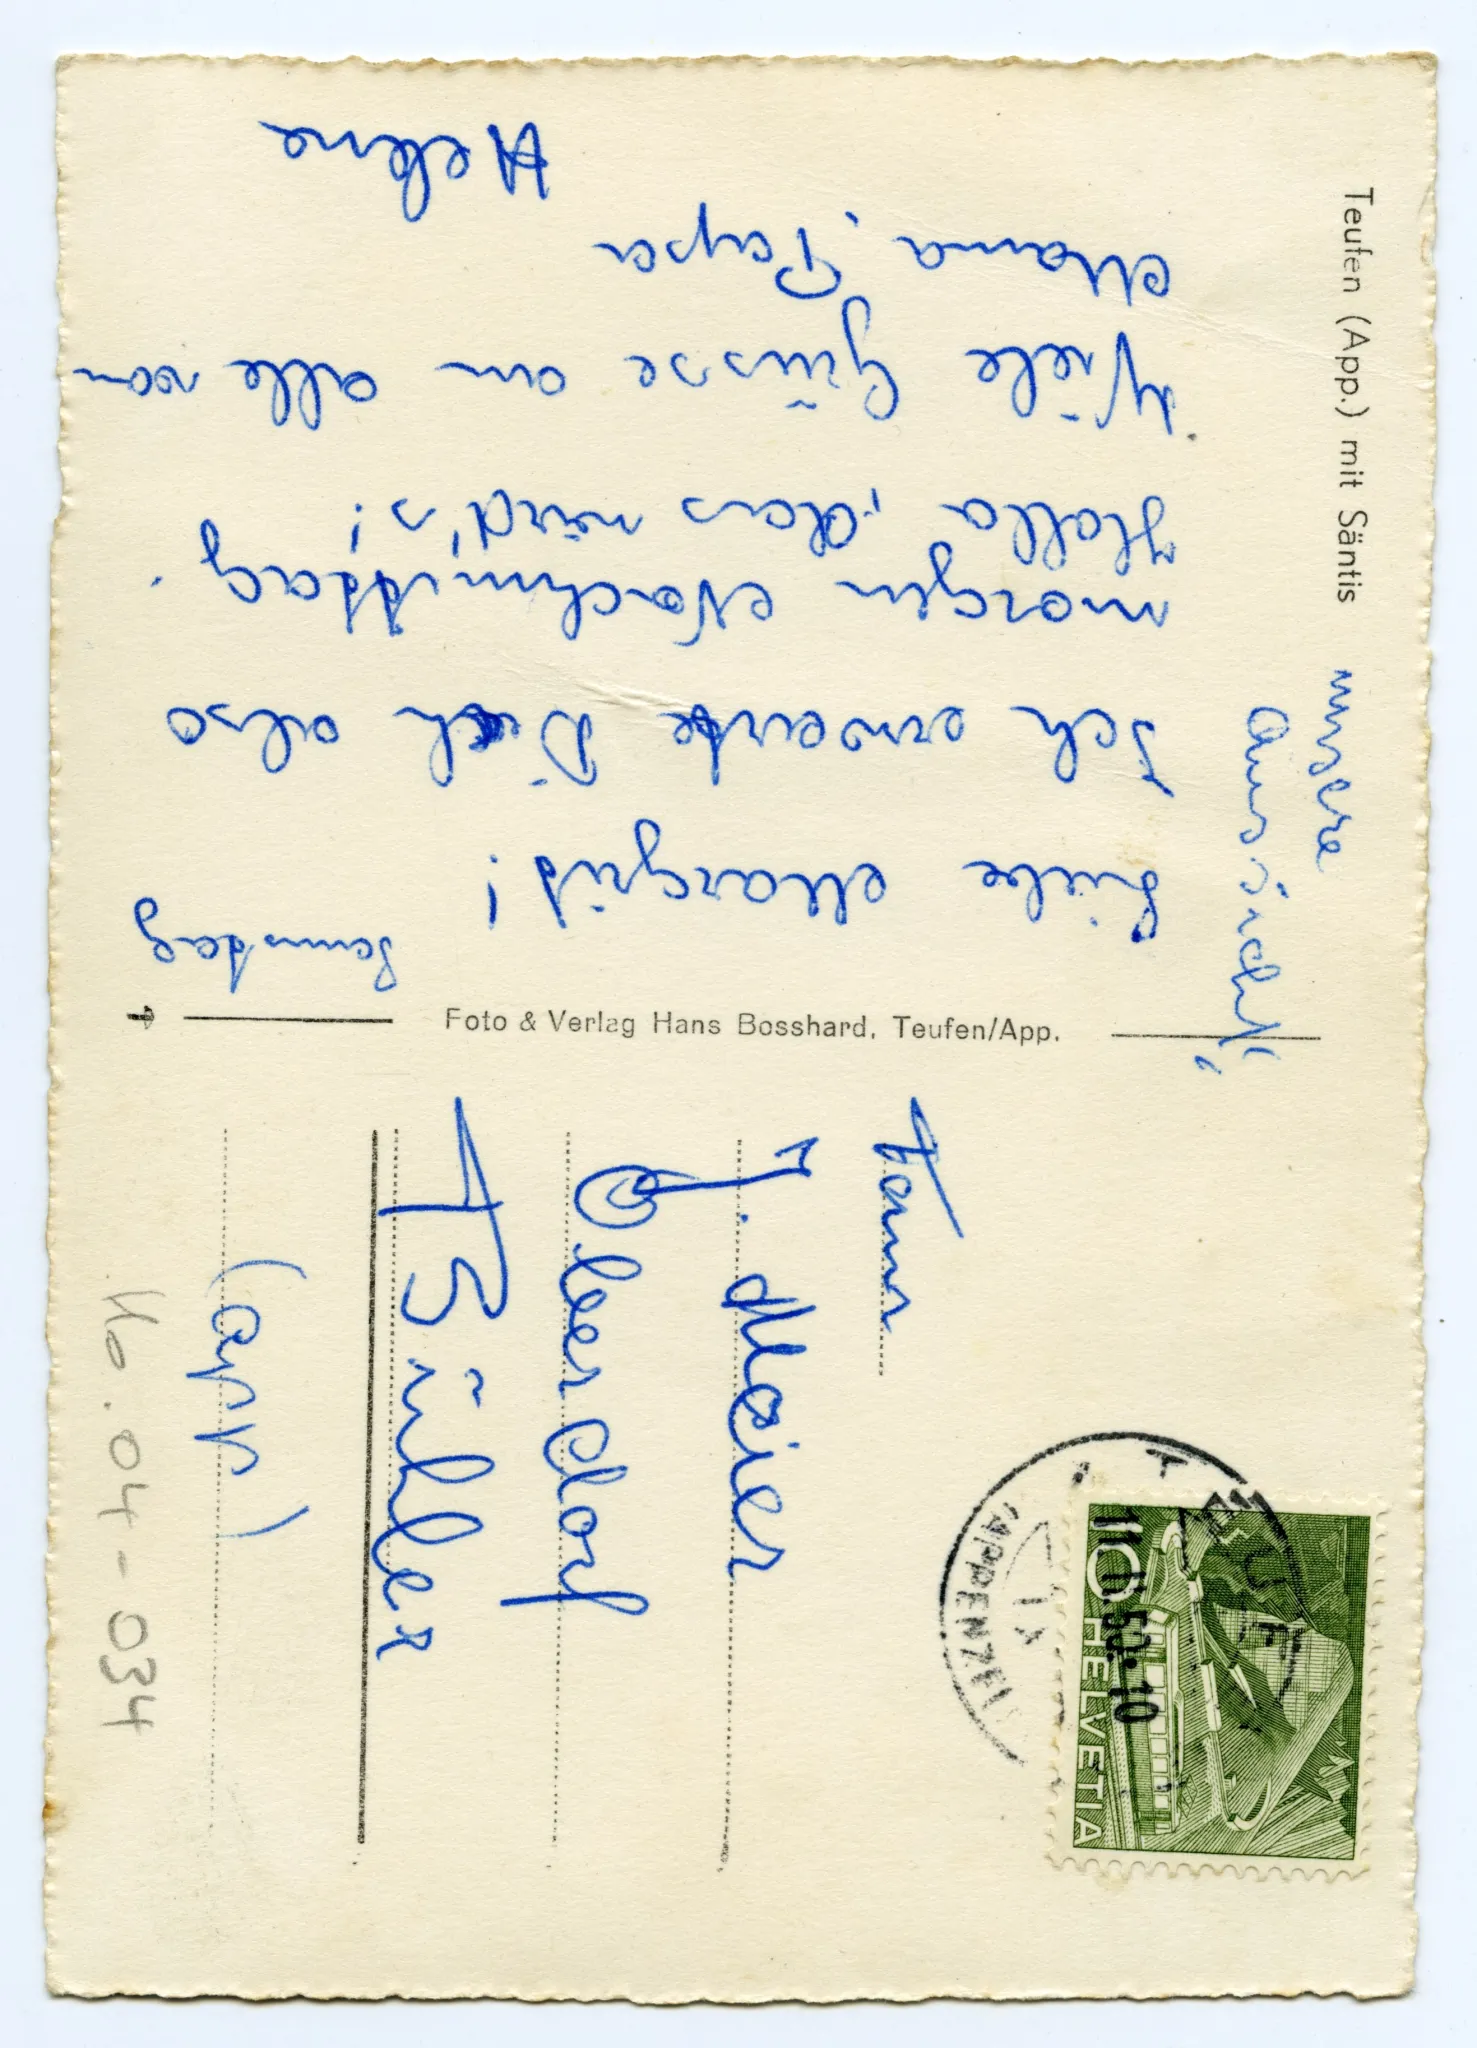 Teufen (App.) mit Säntis
unsere
Aussicht"
Samstag
Liebe Margrit!
Ich erwarte Dich also
morgen Nachmittag.
Hallo, das wird's!
Viele Grüsse an alle von
Mama, Papa
Helene
Foto & Verlag Hans Bosshard, Teufen/App.
Fam
J. Meier
Oberdorf
Bühler
(App.)
Ho.04-034
TEUFEN
(APPENZELL)
11.IX.52.10
10
HELVETIA